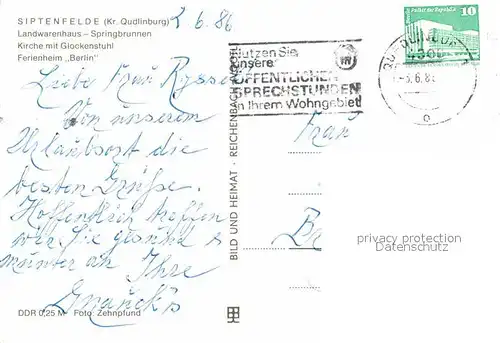 SIPTENFELDE (Kr. Qudlinburg)
Landwarenhaus – Springbrunnen
Kirche mit Glockenstuhl
Ferienheim „Berlin"
2.6.86
Liebe Frau Rysse
Von unserem
Urlaubsort die
besten Grüße.
Hoffentlich treffen
wir Sie gesund &
munter an Ihre
Gnauck's
DDR 0,25 M Foto: Zehnpfund
BILD UND HEIMAT · REICHENBACH
Nutzen Sie
unsere
ÖFFENTLICHEN
SPRECHSTUNDEN
in Ihrem Wohngebiet!
10
-3.6.86
Frau
Be
privacy protection
Datenschutz